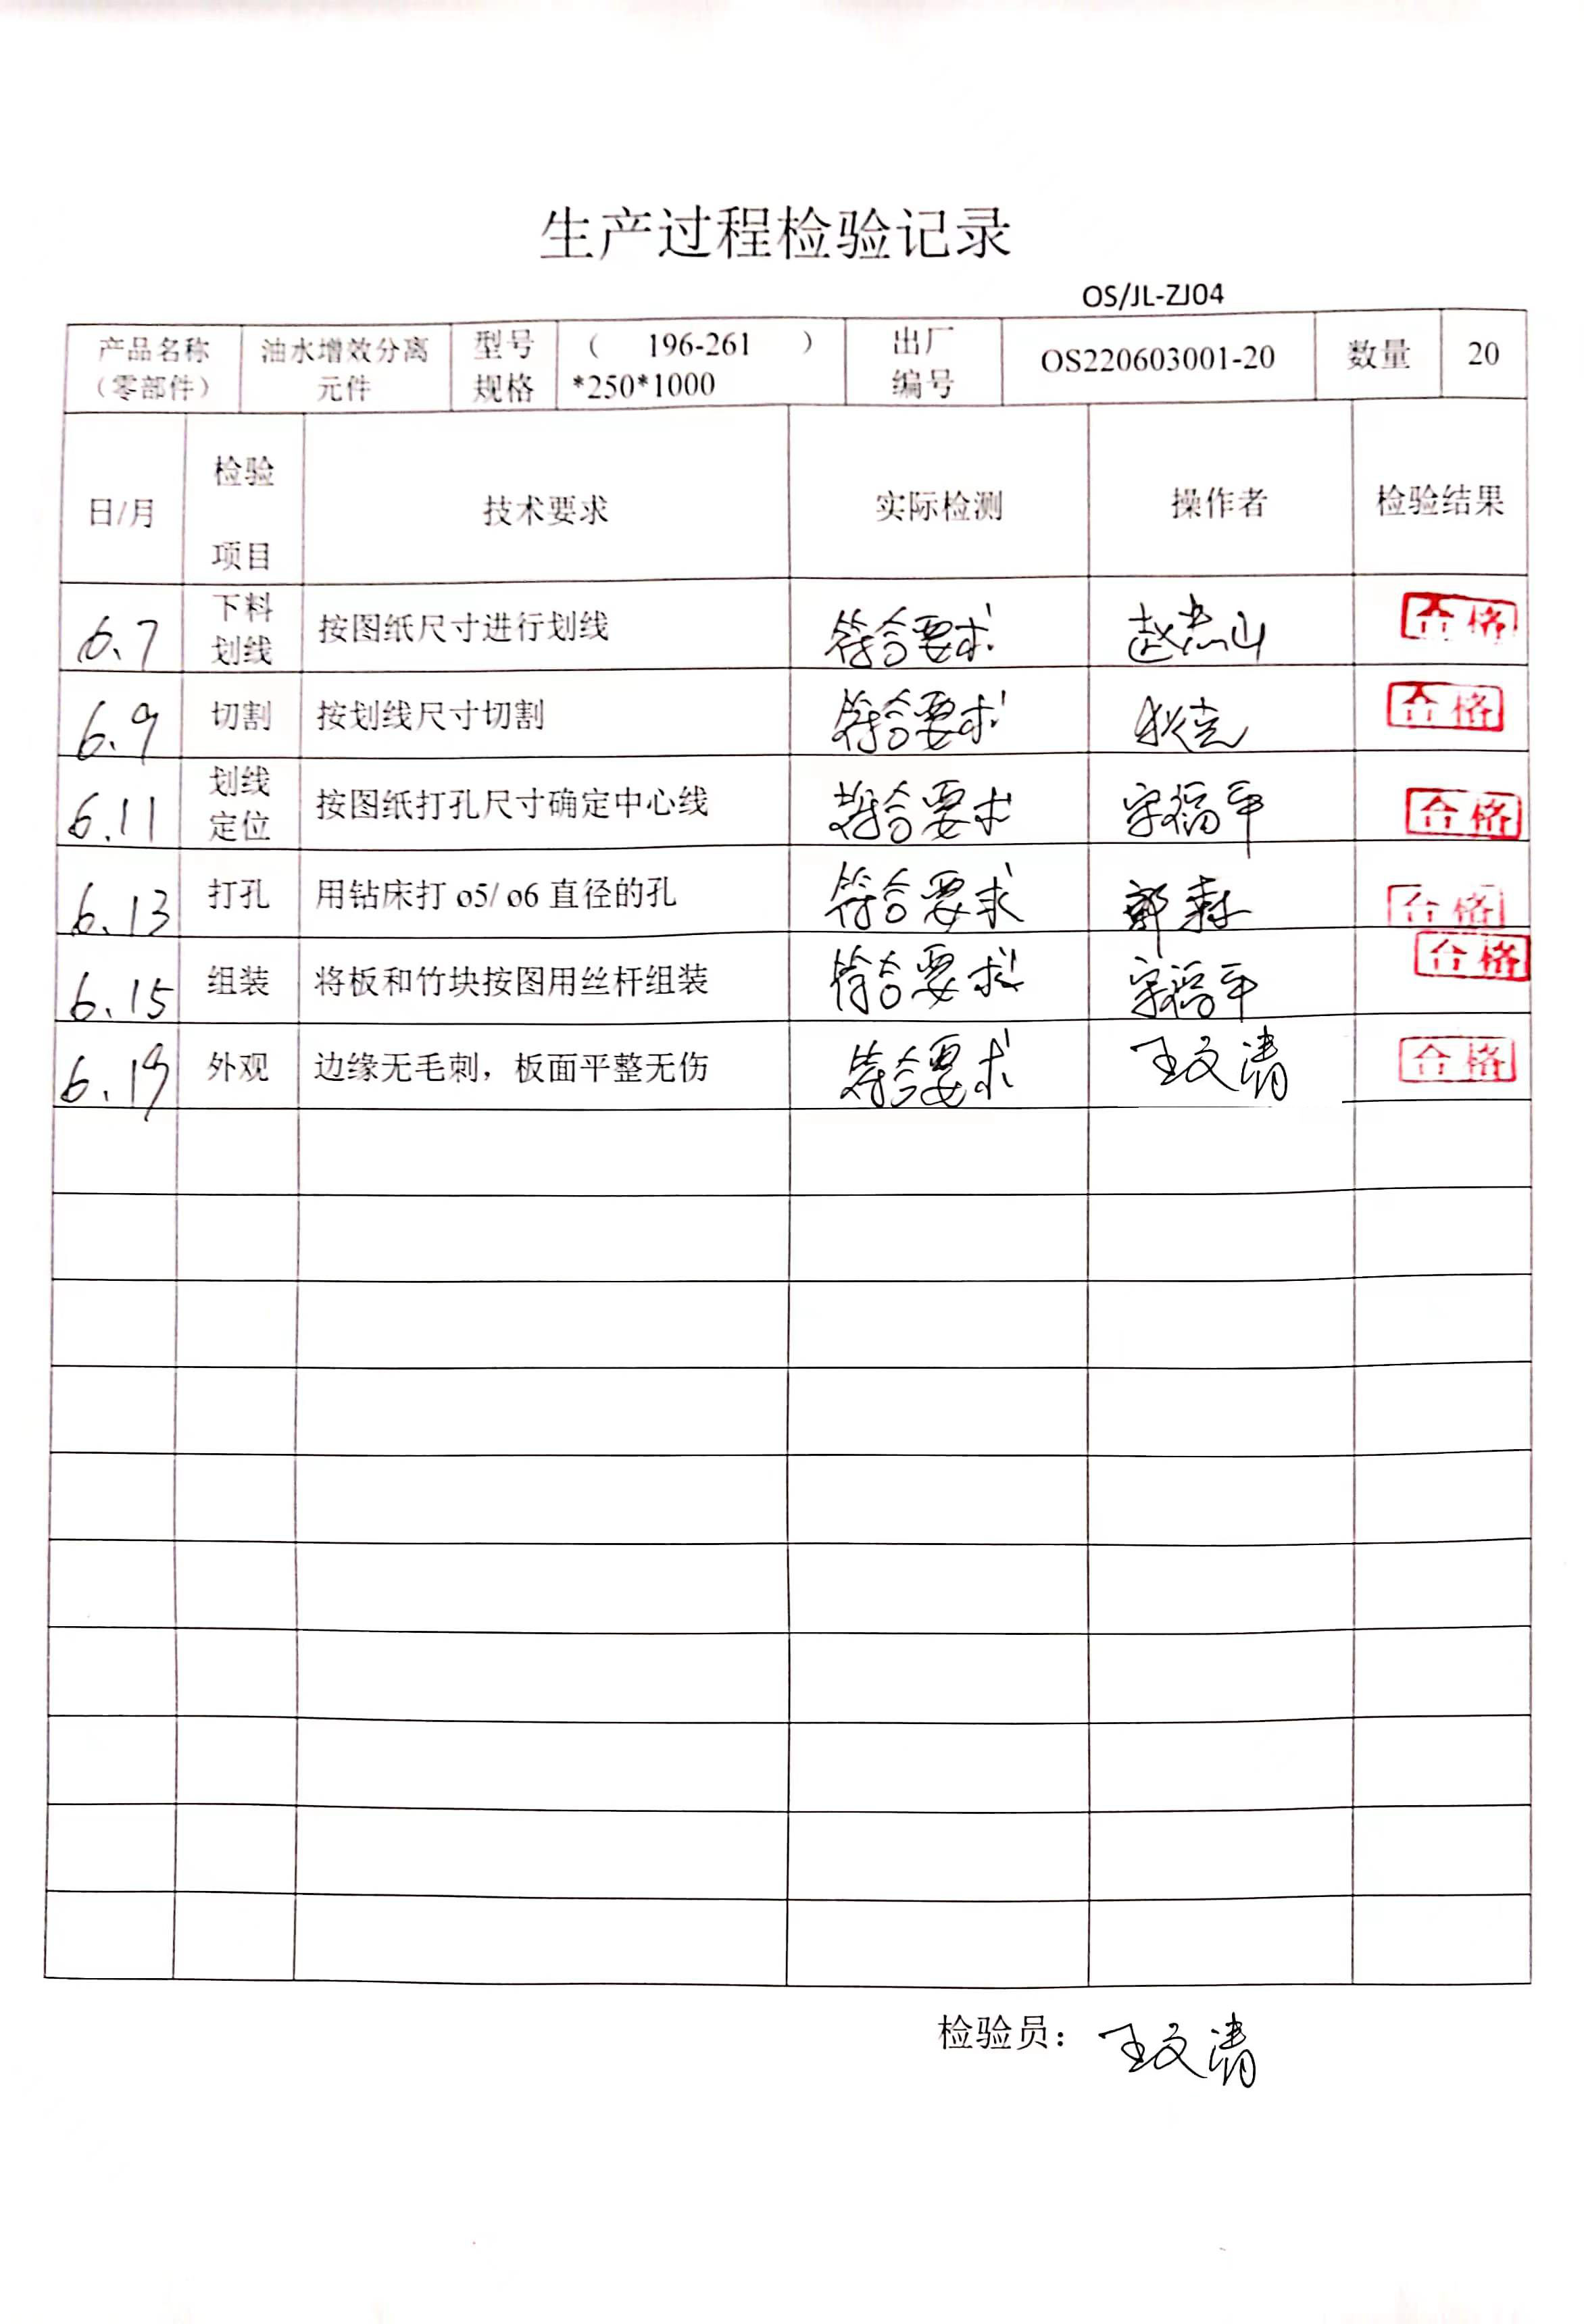 生产过程检验记录
OS/JL-ZJ04
产品名称
（零部件）
油水增效分离
元件
型号
规格
（ 196-261 ）
*250*1000
出厂
编号
OS220603001-20
数量
20
日/月
检验
项目
技术要求
实际检测
操作者
检验结果
6.7
下料
划线
按图纸尺寸进行划线
符合要求
赵志山
合格
6.9
切割
按划线尺寸切割
符合要求
合格
6.11
划线
定位
按图纸打孔尺寸确定中心线
符合要求
宋福平
合格
6.13
打孔
用钻床打 o5/ o6 直径的孔
符合要求
郭森
合格
6.15
组装
将板和竹块按图用丝杆组装
符合要求
宋福平
合格
6.19
外观
边缘无毛刺，板面平整无伤
符合要求
王文清
合格
检验员：王文清